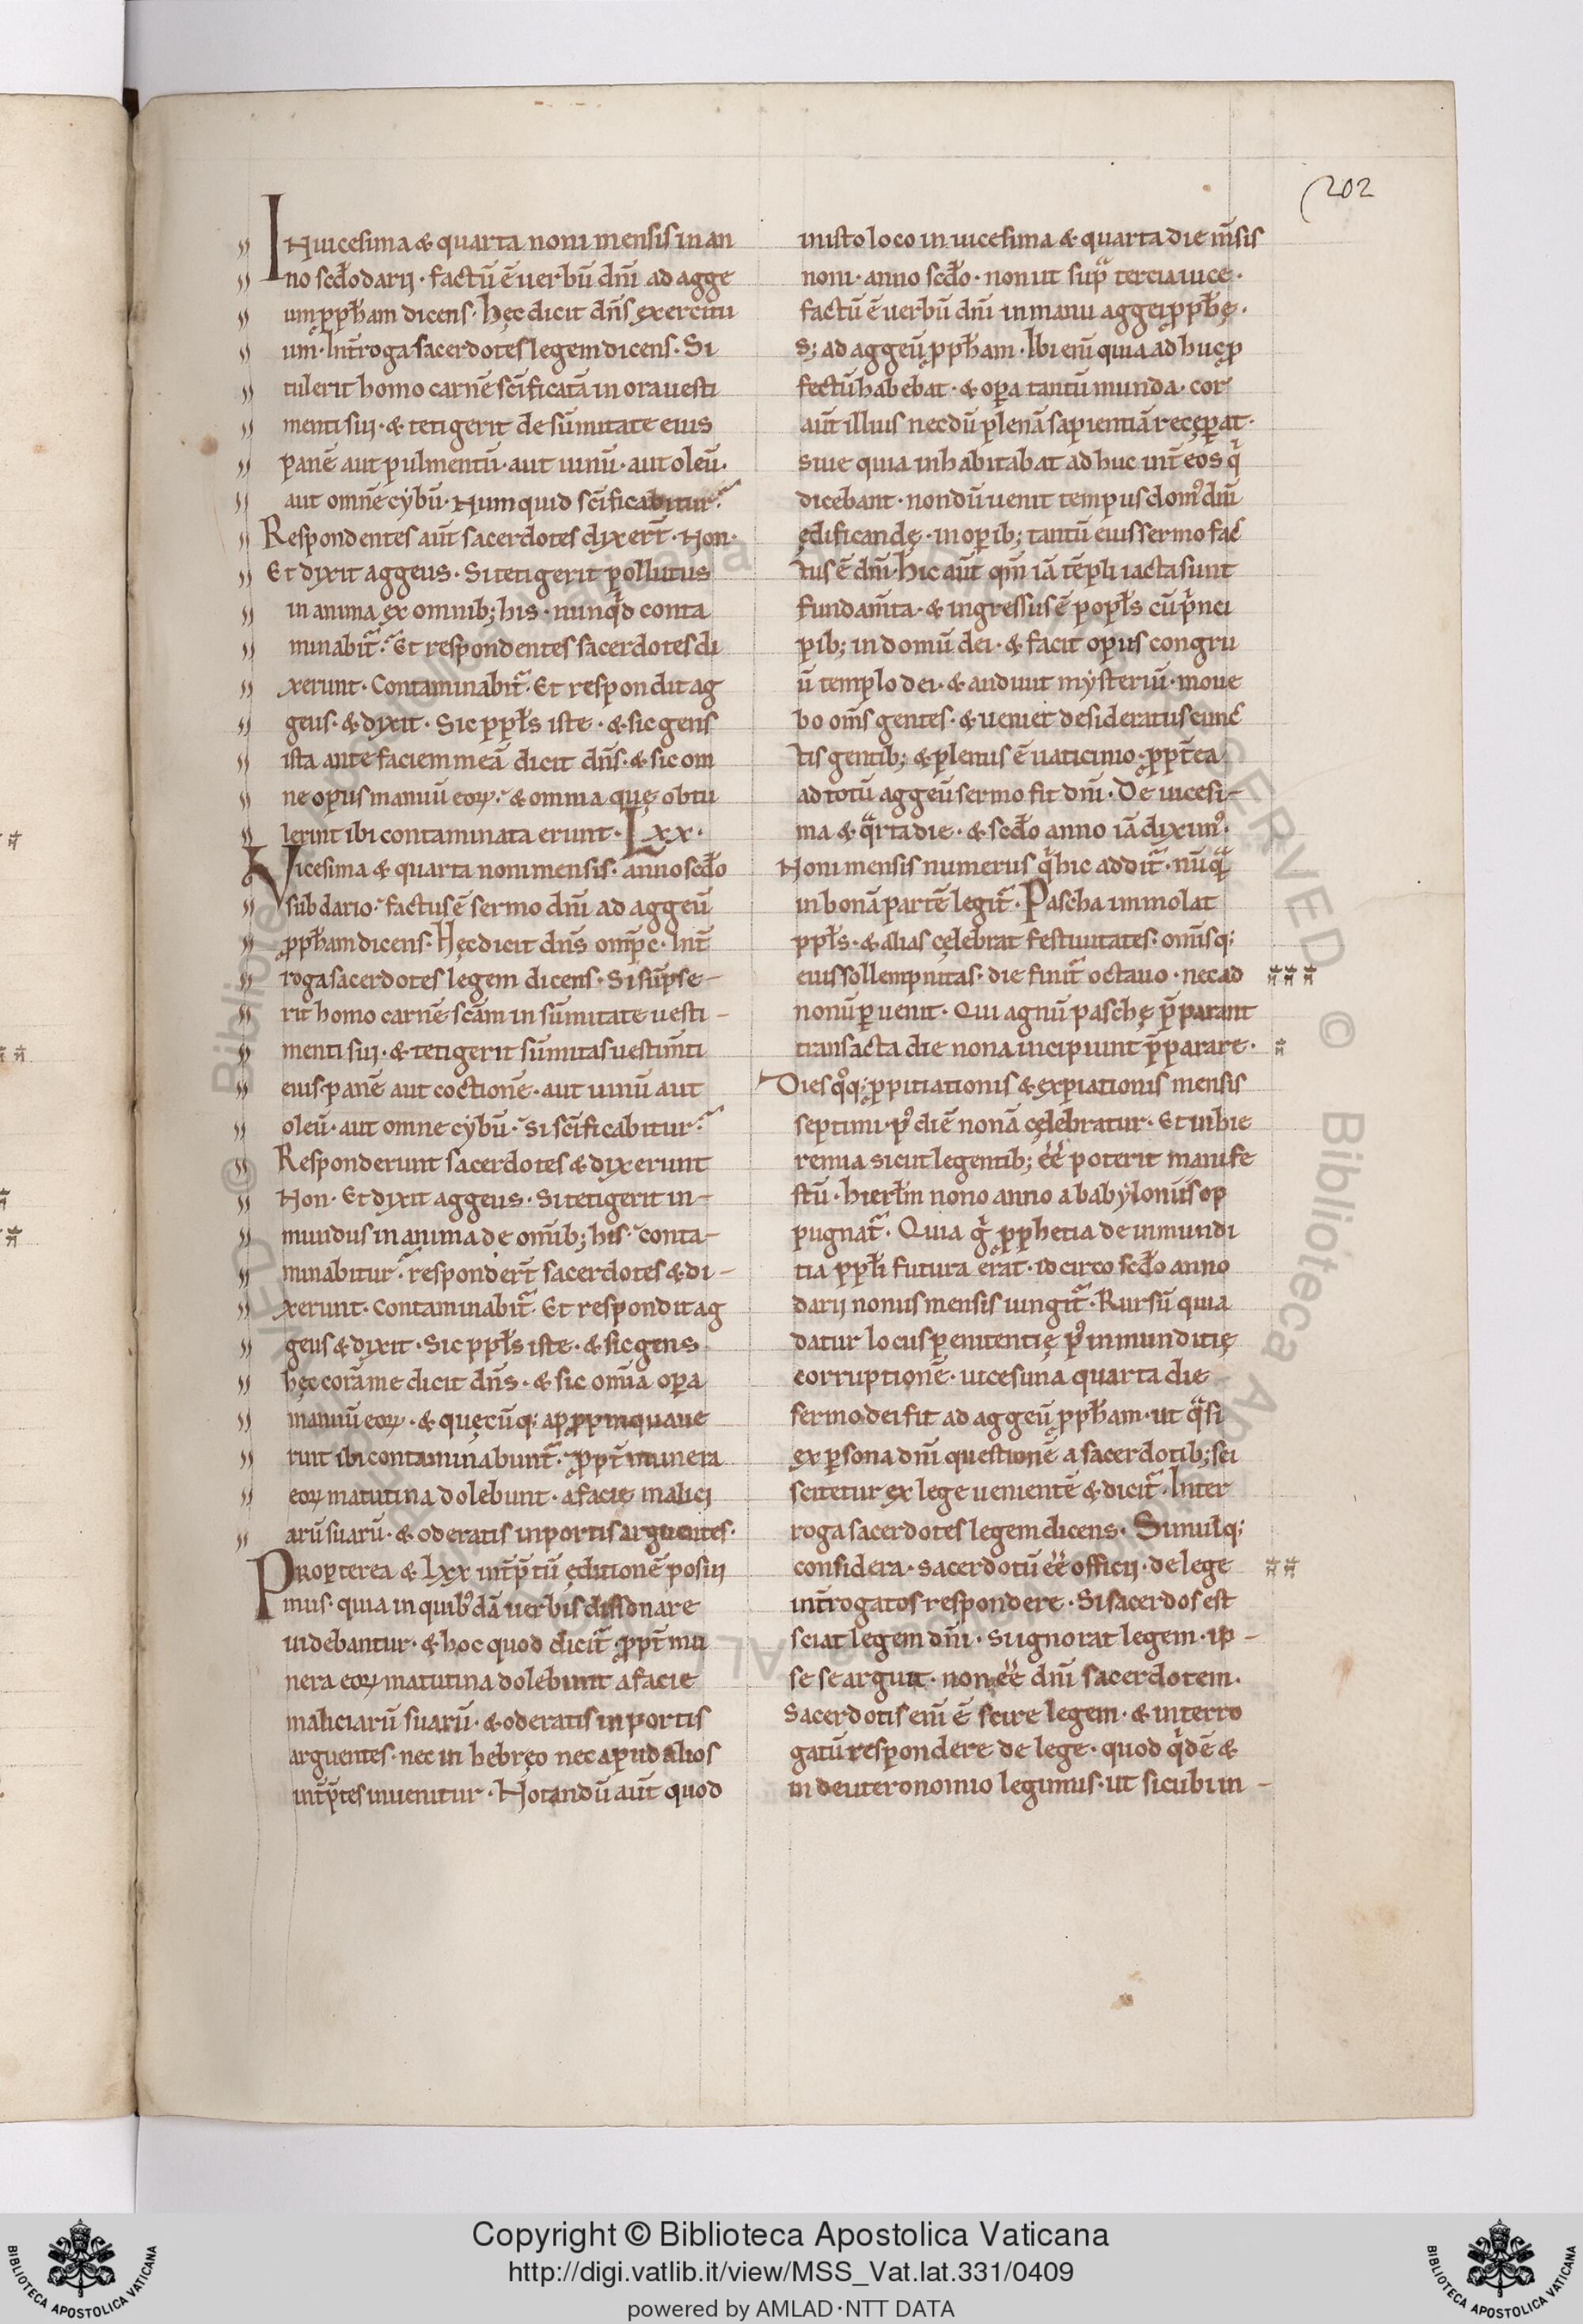 202
IN uicesima & quarta noni mensis in an
no scđo darij · factū ē uerbū dnī ad agge
um ꝓph̄am dicens · hęc dicit dn̄s exercitu
um · Int̄roga sacerdotes legem dicens · Si
tulerit homo carnē sc̄ificatā in ora uesti
menti sui · & tetigerit de sūmitate eius
panē aut pulmentū · aut uinū · aut oleū ·
aut omnē cybū · Numquid sc̄ificabitur?
Respondentes aūt sacerdotes dixer̄t · Non ·
Et dixit aggeus · Si tetigerit pollutus
in anima ex omnib; his · nunqd conta
minabit᷑? Et respondentes sacerdotes di
xerunt · Contaminabit᷑ · Et respondit ag
geus · & dixit · Sic ppłs iste · & sic gens
ista ante faciem meā dicit dn̄s · & sic om
ne opus manuū eoꝝ · & omnia quę obtu
lerint ibi contaminata erunt · Lxx ·
Vicesima & quarta noni mensis · anno scđo
sub dario · factus ē sermo dnī ad aggeū
ꝓph̄am dicens · Hęc dicit dn̄s omp̄c · Int̄
roga sacerdotes legem dicens · Si sūpse-
rit homo carnē scām in sūmitate uesti-
menti sui · & tetigerit sūmitas uestim̄ti
eius · panē aut coctionē · aut uinū aut
oleū · aut omne cybū · si sc̄ificabitur?
Responderunt sacerdotes & dixerunt
Non · Et dixit aggeus · Si tetigerit in-
mundus in anima de omīb; his · conta-
minabitur? responder̄t sacerdotes & di-
xerunt · Contaminabit᷑ · Et respondit ag
geus & dixit · Sic ppłs iste · & sic gens
hęc corā me dicit dn̄s · & sic omīa oꝑa
manuū eoꝝ · & quęcūq; appropinquaue
rint ibi contaminabunt᷑ · ꝓpt̄ munera
eoꝝ matutina dolebunt · a facie malici
arū suarū · & oderatis in portis arguentes ·
Proꝑterea & Lxx int̄p̄tū ędition̄e posui
mus · quia in quibꝰdā uerbis dissonare
uidebantur · & hoc quod dicit᷑ · ꝓpt̄ mu
nera eoꝝ matutina dolebunt a facie
maliciarū suarū · & oderatis in portis
arguentes · nec in hebręo nec apud alios
int̄p̄tes inuenitur · Notandū aūt quod
in isto loco in uicesima & quarta die m̄sis
noni · anno scđo · non ut sup̄ tercia uice ·
factū ē uerbū dnī in manu aggei ꝓph̄ę ·
S; ad aggeū ꝓph̄am · Ibi enī quia adhuc ꝓ
fectū habebat · & oꝑa tantū munda · cor
aūt illius necdū plenā sapientiā recęꝑat ·
Siue quia inhabitabat adhuc int̄ eos q̇
dicebant · nondū uenit tempus domꝰ dnī
ędificandę · in oꝑib; tantū eius sermo fac
tus ē dnī · hic aūt qm̄ iā tēpli iacta sunt
fundam̄ta · & ingressus ē popłs cū pͥnci
pib; in domū dei · & facit opus congru
ū templo dei · & audiuit mysteriū · moue
bo om̄s gentes · & ueniet desideratus cunc
tis gentib; & plenus ē uaticinio · ꝓpt̄ea
ad totū aggeū sermo fit dnī · De uicesi-
ma & qͣrta die · & scđo anno iā diximꝰ ·
Noni mensis numerus q̇ hic addit᷑ · nūqͣ
in bonā partē legit᷑ · Pascha immolat
ppłs · & alias cęlebrat festiuitates · omīsq;
eius sollempnitas · die finit᷑ octauo · nec ad
nonū ꝑuenit · Qui agnū paschę p̄parant
transacta die nona incipiunt p̄parare ·
Dies qͦq; ꝓpitiationis & expiationis mensis
septimi · pꝰ diē nonā cęlebratur · Et in hie
remia sicut legentib; ēē poterit manife
stū · hierłm nono anno a babylonīis op
pugnat᷑ · Quia gͥ ꝓphetia de inmundi
tia ppłi futura erat · idcirco scđo anno
darij nonus mensis iungit᷑ · Rursū quia
datur locus pęnitentię pꝰ inmunditię
corruptionē · uicesima quarta die
sermo dei fit ad aggeū ꝓph̄am · ut qͣsi
ex ꝑsona dnī questionē a sacerdotib; sci
scitetur ex lege uenientē & dicit᷑ · Inter
roga sacerdotes legem dicens · Simulq;
considera · sacerdotū ēē officij · de lege
int̄rogatos respondere · Si sacerdos est
sciat legem dnī · si ignorat legem · ip-
se se arguit · non ēē dnī sacerdotem ·
Sacerdotis enī ē scire legem · & interro
gatū respondere de lege · quod q̇dē &
in deuteronomio legimus · ut sicubi in-
Copyright © Biblioteca Apostolica Vaticana
http://digi.vatlib.it/view/MSS_Vat.lat.331/0409
powered by AMLAD·NTT DATA
BIBLIOTECA APOSTOLICA VATICANA
BIBLIOTECA APOSTOLICA VATICANA